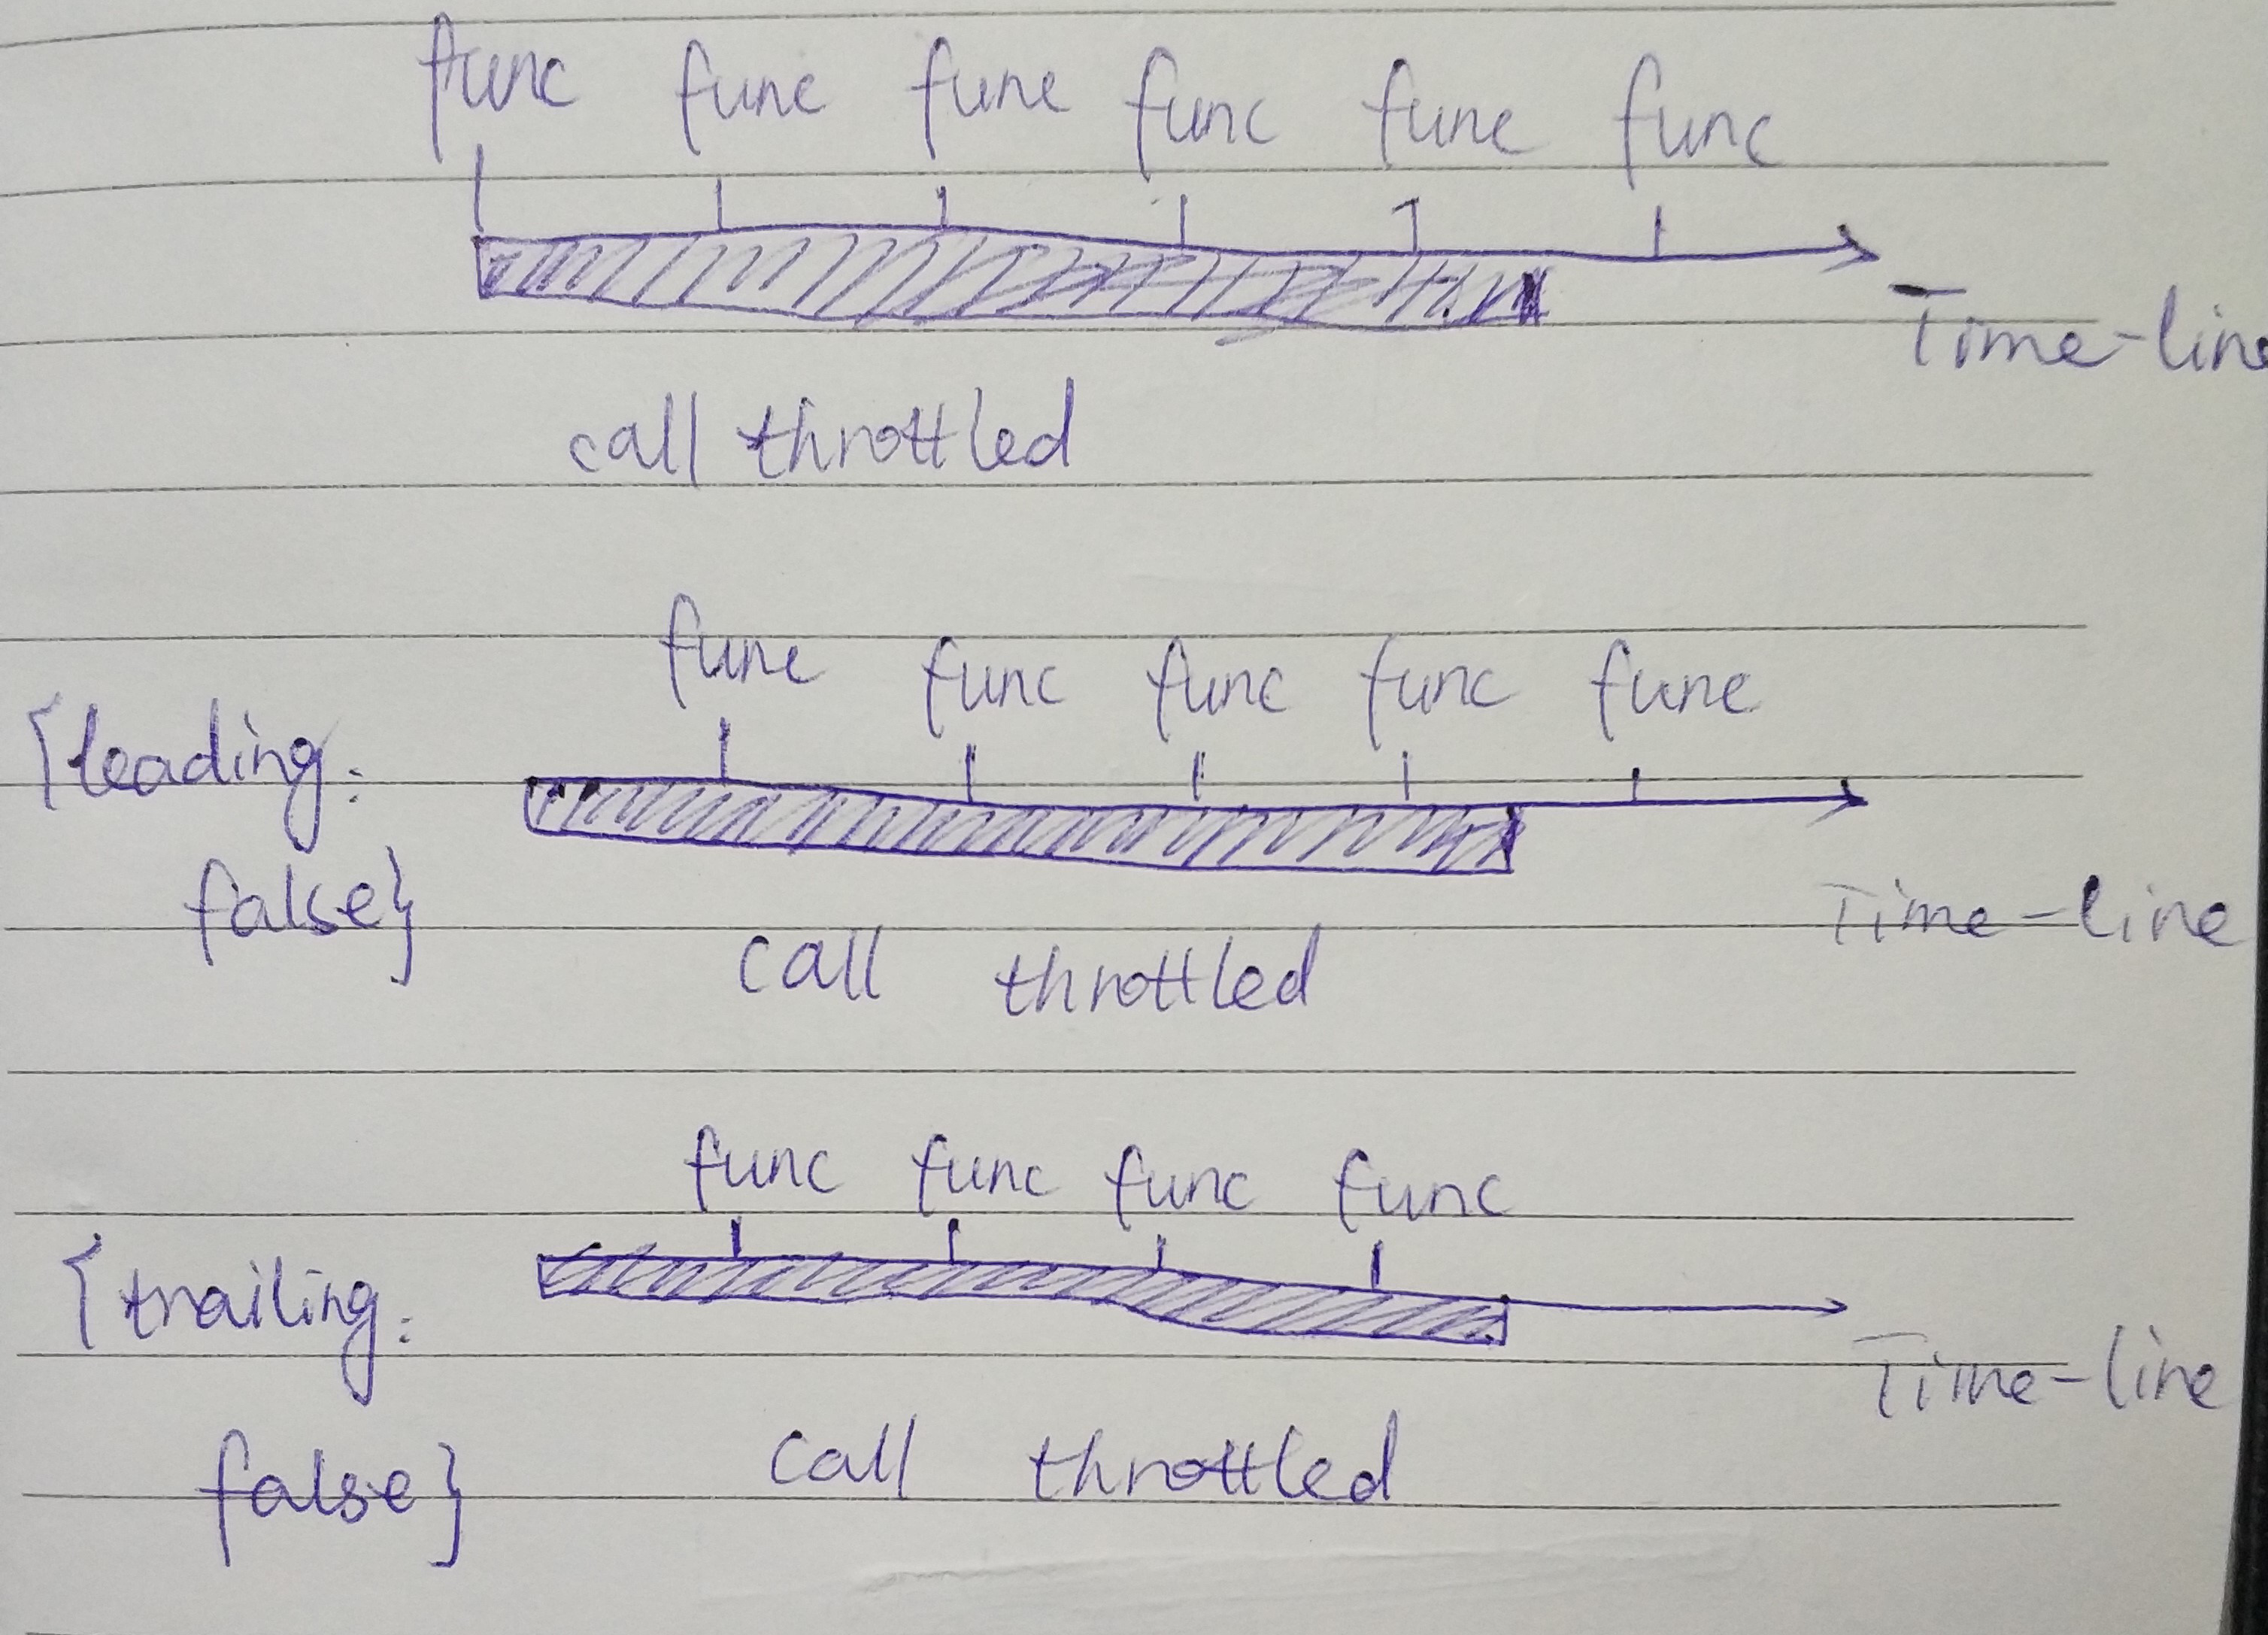 func func func func func func
Time-line
call throttled
func func func func func
{leading:
false}
Time-line
call throttled
func func func func
{trailing:
Time-line
call throttled
false}